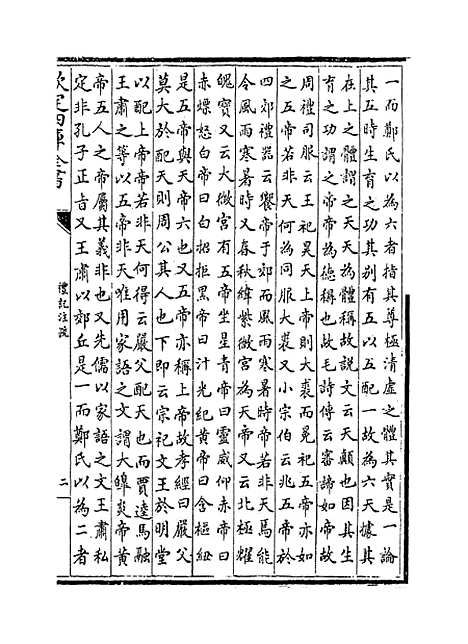 一而鄭氏以為六者指其尊極清虛之體其實是一論
其五時生育之功其别有五以五配一故為六天據其
在上之體謂之天天為體稱故說文云天顛也因其生
育之功謂之帝帝為德稱也故毛詩傳云審諦如帝故
周禮司服云王祀昊天上帝則大裘而冕祀五帝亦如
之五帝若非天何為同服大裘又小宗伯云兆五帝於
四郊禮器云饗帝于郊而風雨寒暑時帝若非天焉能
令風雨寒暑時又春秋緯紫微宮為天帝又云北極耀
魄寶又云大微宮有五帝坐星青帝曰靈威仰赤帝曰
赤熛怒白帝曰白招拒黑帝曰汁光紀黄帝曰含樞紐
是五帝與天帝六也又五帝亦稱上帝故孝經曰嚴父
莫大於配天則周公其人也下即云宗祀文王於明堂
以配上帝帝若非天何得云嚴父配天也而賈逵馬融
王肅之等以五帝非天唯用家語之文謂大皥炎帝黄
帝五人之帝屬其義非也又先儒以家語之文王肅私
定非孔子正旨又王肅以郊丘是一而鄭氏以為二者
欽定四庫全書
禮記注疏
二